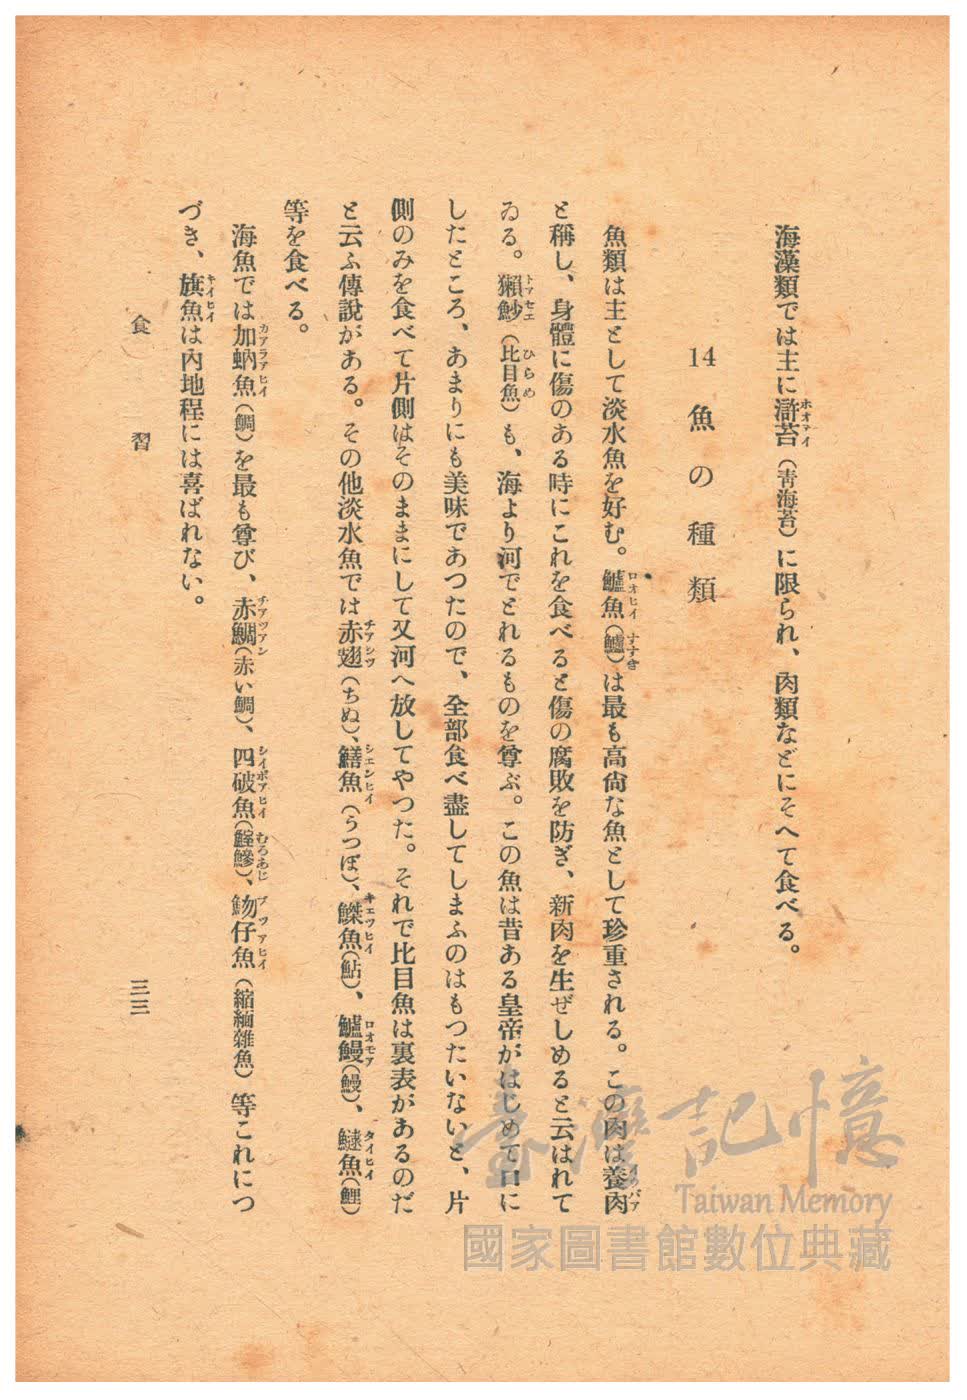 海藻類では主に滸苔（靑海苔）に限られ、肉類などにそへて食べる。
14 魚の種類
魚類は主として淡水魚を好む。鱸魚（鱸）は最も高尙な魚として珍重される。この肉は養肉
と稱し、身體に傷のある時にこれを食べると傷の腐敗を防ぎ、新肉を生ぜしめると云はれて
ゐる。獺魦（比目魚）も、海より河でとれるものを尊ぶ。この魚は昔ある皇帝がはじめて口に
したところ、あまりにも美味であつたので、全部食べ盡してしまふのはもつたいないと、片
側のみを食べて片側はそのままにして又河へ放してやつた。それで比目魚は裏表があるのだ
と云ふ傳說がある。その他淡水魚では赤翅（ちぬ）、鱔魚（うつぼ）、鱖魚（鮎）、鱸鰻（鰻）、鰱魚（鯉）
等を食べる。
海魚では加蚋魚（鯛）を最も尊び、赤鯛（赤い鯛）、四破魚（鰘鰺）、魩仔魚（縮緬雜魚）等これにつ
づき、旗魚は內地程には喜ばれない。
食習
三三
臺灣記憶
Taiwan Memory
國家圖書館數位典藏